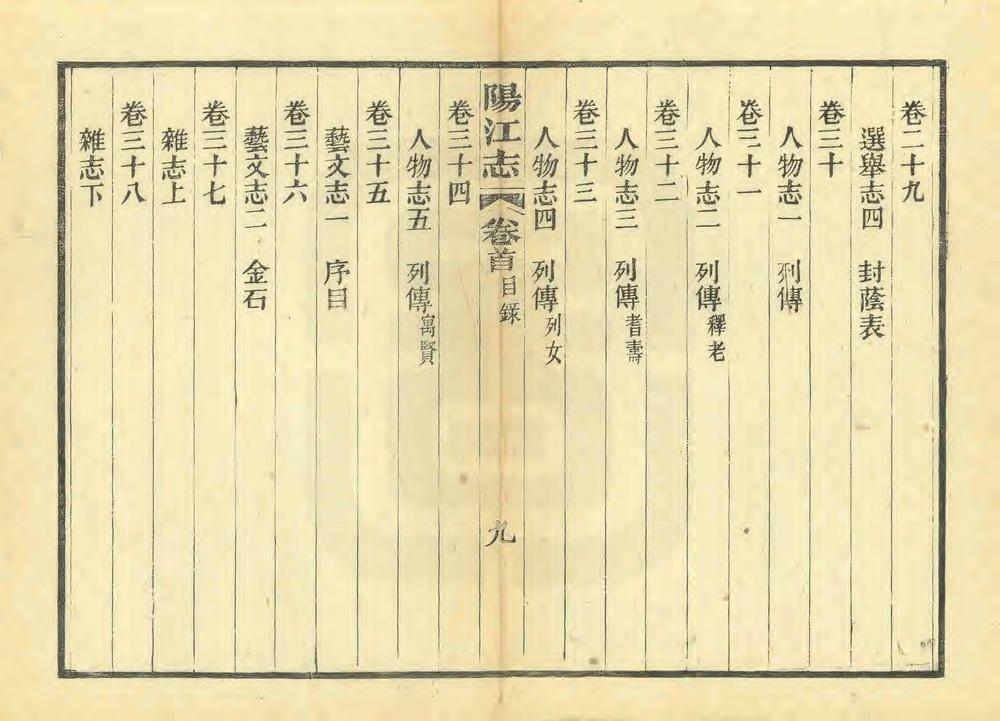 卷二十九
選舉志四　封蔭表
卷三十
人物志一　列傳
卷三十一
人物志二　列傳釋老
卷三十二
人物志三　列傳耆壽
卷三十三
人物志四　列傳列女
陽江志　卷首目錄　九
卷三十四
人物志五　列傳寓賢
卷三十五
藝文志一　序目
卷三十六
藝文志二　金石
卷三十七
雜志上
卷三十八
雜志下